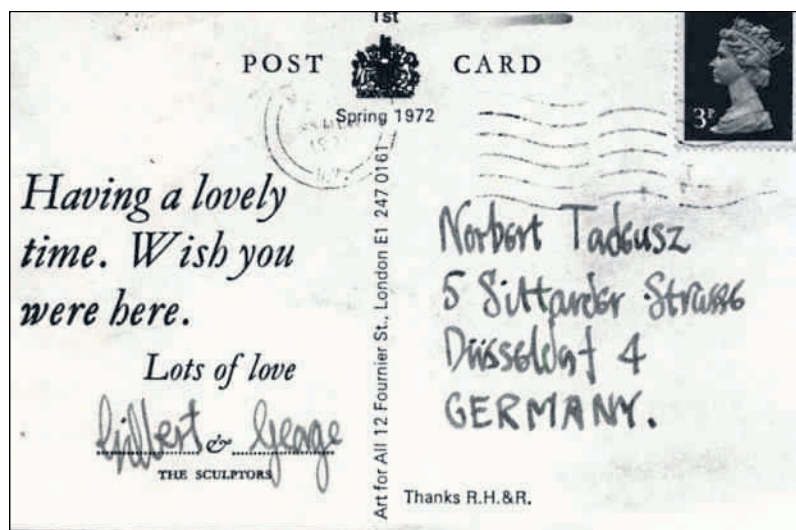 1st
POST CARD
Spring 1972
3P
Having a lovely
time. Wish you
were here.
Lots of love
Gilbert & George
THE SCULPTORS
Art for All 12 Fournier St., London E1 247 0161
Norbert Tadeusz
5 Sittarder Strasse
Düsseldorf 4
GERMANY.
Thanks R.H.&R.